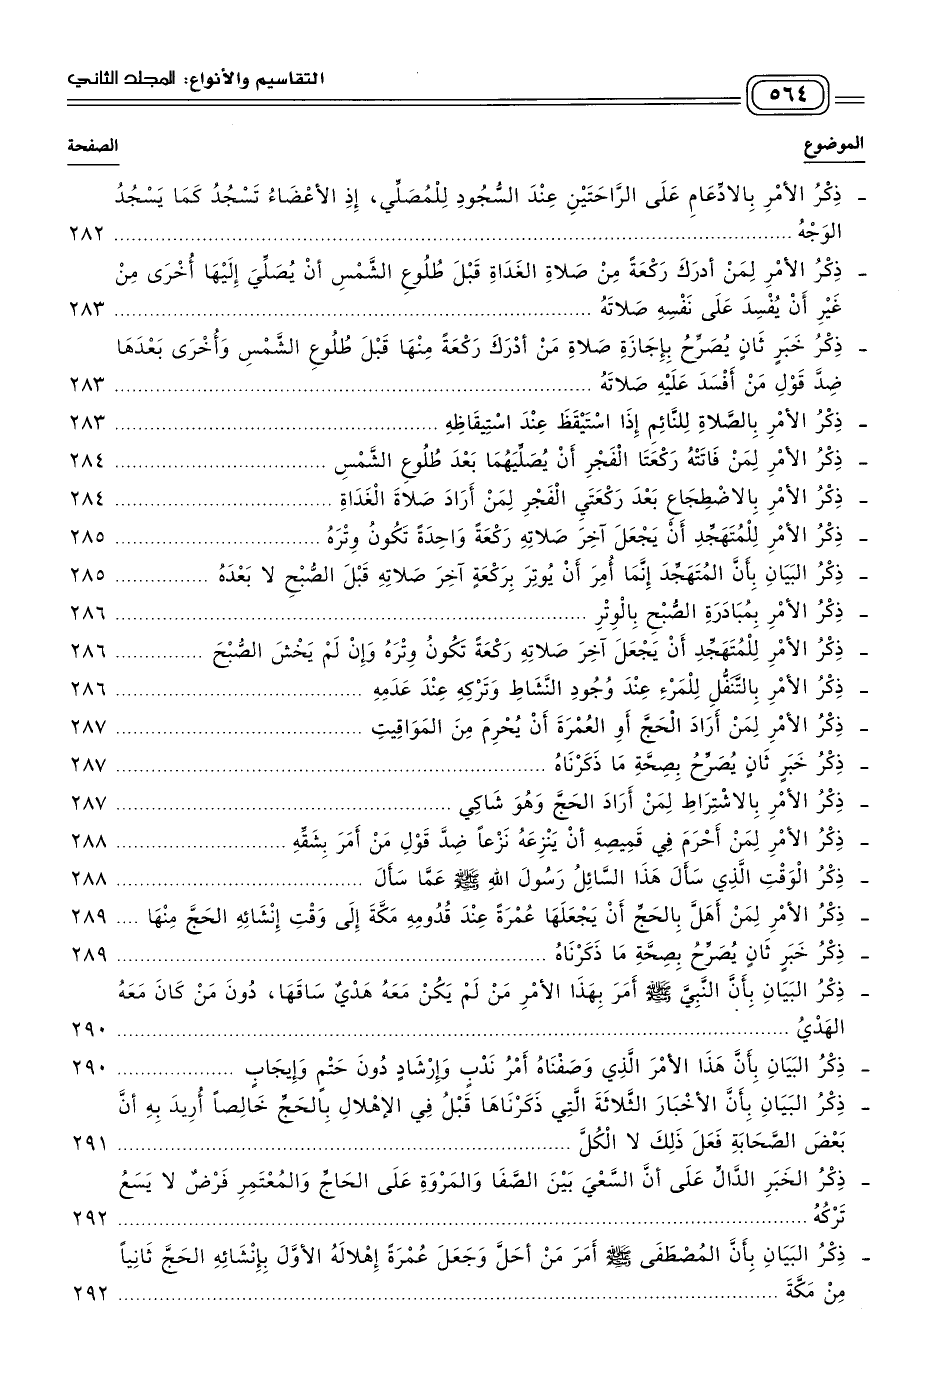 التقاسيم والأنواع: المجلد الثاني
٥٦٤
الموضوع الصفحة
- ذِكْرُ الأَمْرِ بِالادِّعَامِ عَلَى الرَّاحَتَيْنِ عِنْدَ السُّجُودِ لِلْمُصَلِّي، إِذِ الأَعْضَاءُ تَسْجُدُ كَمَا يَسْجُدُ
الوَجْهُ ........ ٢٨٢
- ذِكْرُ الأَمْرِ لِمَنْ أدرَكَ رَكْعَةً مِنْ صَلاةِ الغَدَاةِ قَبْلَ طُلُوعِ الشَّمْسِ أنْ يُصَلِّيَ إِلَيْهَا أُخْرَى مِنْ
غَيْرِ أَنْ يُفْسِدَ عَلَى نَفْسِهِ صَلاتَهُ ........ ٢٨٣
- ذِكْرُ خَبَرٍ ثَانٍ يُصَرِّحُ بِإِجَازَةِ صَلاةِ مَنْ أدْرَكَ رَكْعَةً مِنْهَا قَبْلَ طُلُوعِ الشَّمْسِ وَأُخْرَى بَعْدَهَا
ضِدَّ قَوْلِ مَنْ أَفْسَدَ عَلَيْهِ صَلاتَهُ ........ ٢٨٣
- ذِكْرُ الأَمْرِ بِالصَّلاةِ لِلنَّائِمِ إِذَا اسْتَيْقَظَ عِنْدَ اسْتِيقَاظِهِ ........ ٢٨٣
- ذِكْرُ الأَمْرِ لِمَنْ فَاتَتْهُ رَكْعَتَا الْفَجْرِ أَنْ يُصَلِّيَهُمَا بَعْدَ طُلُوعِ الشَّمْسِ ........ ٢٨٤
- ذِكْرُ الأَمْرِ بِالاضْطِجَاعِ بَعْدَ رَكْعَتَيِ الْفَجْرِ لِمَنْ أَرَادَ صَلاةَ الْغَدَاةِ ........ ٢٨٤
- ذِكْرُ الأَمْرِ لِلْمُتَهَجِّدِ أَنْ يَجْعَلَ آخِرَ صَلاتِهِ رَكْعَةً وَاحِدَةً تَكُونُ وِتْرَهُ ........ ٢٨٥
- ذِكْرُ البَيَانِ بِأَنَّ المُتَهَجِّدَ إِنَّمَا أُمِرَ أَنْ يُوتِرَ بِرَكْعَةٍ آخِرَ صَلاتِهِ قَبْلَ الصُّبْحِ لا بَعْدَهُ ........ ٢٨٥
- ذِكْرُ الأَمْرِ بِمُبَادَرَةِ الصُّبْحِ بِالْوِتْرِ ........ ٢٨٦
- ذِكْرُ الأَمْرِ لِلْمُتَهَجِّدِ أَنْ يَجْعَلَ آخِرَ صَلاتِهِ رَكْعَةً تَكُونُ وِتْرَهُ وَإِنْ لَمْ يَخْشَ الصُّبْحَ ........ ٢٨٦
- ذِكْرُ الأَمْرِ بِالتَّنَفُّلِ لِلْمَرْءِ عِنْدَ وُجُودِ النَّشَاطِ وَتَرْكِهِ عِنْدَ عَدَمِهِ ........ ٢٨٦
- ذِكْرُ الأَمْرِ لِمَنْ أَرَادَ الْحَجَّ أَوِ العُمْرَةَ أَنْ يُحْرِمَ مِنَ المَوَاقِيتِ ........ ٢٨٧
- ذِكْرُ خَبَرٍ ثَانٍ يُصَرِّحُ بِصِحَّةِ مَا ذَكَرْنَاهُ ........ ٢٨٧
- ذِكْرُ الأَمْرِ بِالاشْتِرَاطِ لِمَنْ أَرَادَ الحَجَّ وَهُوَ شَاكِي ........ ٢٨٧
- ذِكْرُ الأَمْرِ لِمَنْ أَحْرَمَ فِي قَمِيصِهِ أنْ يَنْزِعَهُ نَزْعاً ضِدَّ قَوْلِ مَنْ أَمَرَ بِشَقِّهِ ........ ٢٨٨
- ذِكْرُ الْوَقْتِ الَّذِي سَأَلَ هَذَا السَّائِلُ رَسُولَ اللهِ ﷺ عَمَّا سَأَلَ ........ ٢٨٨
- ذِكْرُ الأَمْرِ لِمَنْ أَهَلَّ بِالحَجِّ أَنْ يَجْعَلَهَا عُمْرَةً عِنْدَ قُدُومِهِ مَكَّةَ إِلَى وَقْتِ إِنْشَائِهِ الحَجَّ مِنْهَا .... ٢٨٩
- ذِكْرُ خَبَرٍ ثَانٍ يُصَرِّحُ بِصِحَّةِ مَا ذَكَرْنَاهُ ........ ٢٨٩
- ذِكْرُ البَيَانِ بِأَنَّ النَّبِيَّ ﷺ أَمَرَ بِهَذَا الأَمْرِ مَنْ لَمْ يَكُنْ مَعَهُ هَدْيٌ سَاقَهَا، دُونَ مَنْ كَانَ مَعَهُ
الهَدْيُ ........ ٢٩٠
- ذِكْرُ البَيَانِ بِأَنَّ هَذَا الأَمْرَ الَّذِي وَصَفْنَاهُ أَمْرُ نَدْبٍ وَإِرْشَادٍ دُونَ حَتْمٍ وَإِيجَابٍ ........ ٢٩٠
- ذِكْرُ البَيَانِ بِأَنَّ الأَخْبَارَ الثَّلاثَةَ الَّتِي ذَكَرْنَاهَا قَبْلُ فِي الإِهْلالِ بِالحَجِّ خَالِصاً أُرِيدَ بِهِ أنَّ
بَعْضَ الصَّحَابَةِ فَعَلَ ذَلِكَ لا الْكُلَّ ........ ٢٩١
- ذِكْرُ الخَبَرِ الدَّالِّ عَلَى أنَّ السَّعْيَ بَيْنَ الصَّفَا وَالمَرْوَةِ عَلَى الحَاجِّ وَالْمُعْتَمِرِ فَرْضٌ لا يَسَعُ
تَرْكُهُ ........ ٢٩٢
- ذِكْرُ البَيَانِ بِأَنَّ المُصْطَفَى ﷺ أَمَرَ مَنْ أحَلَّ وَجَعَلَ عُمْرَةً إِهْلالَهُ الأَوَّلَ بِإِنْشَائِهِ الحَجَّ ثَانِياً
مِنْ مَكَّةَ ........ ٢٩٢